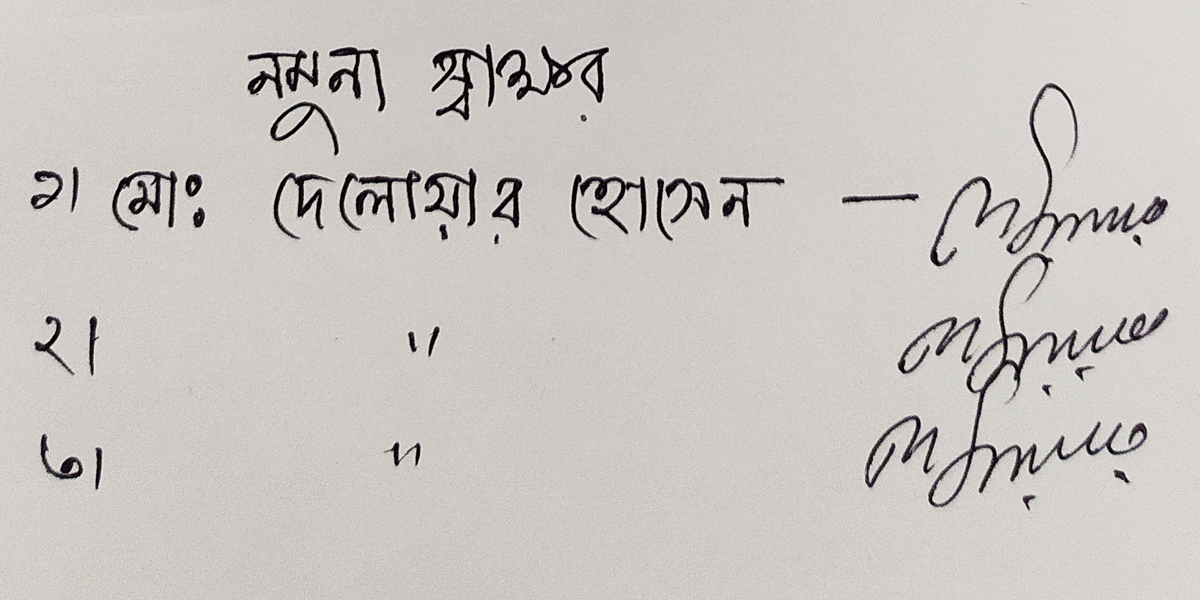 নমুনা স্বাক্ষর
১। মোঃ দেলোয়ার হোসেন —
২। "
৩। "